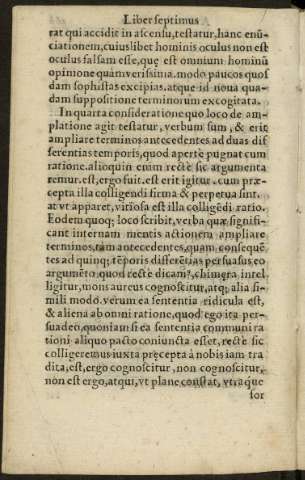 Liber septimus
rat qui accidit in ascensu, testatur, hanc enũ-
ciationem, cuiuslibet hominis oculus non est
oculus falsam esse, quę est omnium hominũ
opinione quàm verissima. modo paucos quos
dam sophistas excipias. atque id noua qua-
dam suppositione terminorum excogitata.
In quarta consideratione quo loco de am-
platione agit testatur, verbum sum, & erit
ampliare terminos antecedentes ad duas dif
ferentias temporis, quod apertè pugnat cum
ratione. alioquin enim rectè sic argumenta
remur. est, ergo fuit. est erit igitur. cum præ-
cepta illa colligendi firma & perpetua sint.
at vt apparet, vitiosa est illa colligẽdi ratio.
Eodem quoq; loco scribit, verba quæ signifi-
cant internam mentis actionem ampliare
terminos, tam antecedentes, quam consequẽ-
tes ad quinq; tẽporis differẽtias persuasus eo
argumẽto, quod rectè dicam?, chimęra intel
ligitur, mons aureus cognoscitur, atq; alia si-
mili modo. verum ea sententia ridicula est,
& aliena ab omni ratione, quod ego ita per-
suadeo, quoniam si ea sententia communi ra
tioni aliquo pacto coniuncta esset, rectè sic
colligeremus iuxta pręcepta à nobis iam tra
dita, est, ergo cognoscitur, non cognoscitur,
non est ergo, atqui, vt planè constat, vtraque
for